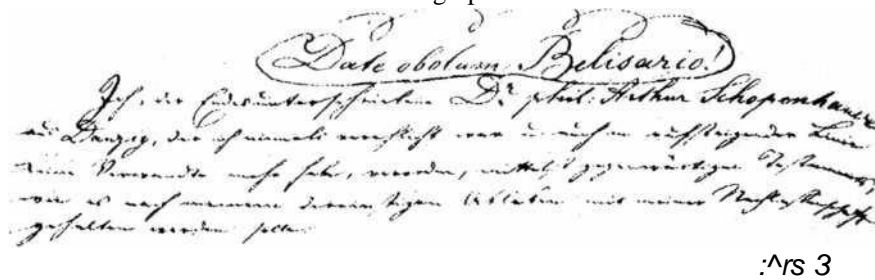 Date obolum Belisario!
Ich, der Endesunterschriebene Dr phil: Arthur Schopenhauer
aus Danzig, der ich niemals verehelicht war u. auch in aufsteigender Linie
keine Verwandte mehr habe, verordne, mittelst gegenwärtigen Testaments,
wie es nach meinem dereinstigen Ableben mit meiner Nachlassenschaft
gehalten werden soll
:^rs 3